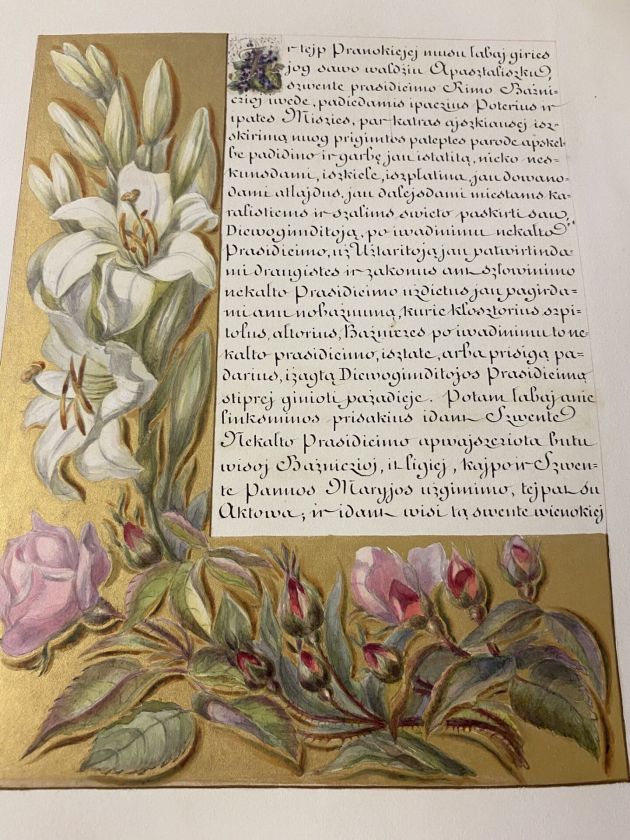 Ir tejp Pranokiejej musu labaj giries
jog sawo waldžiu Apasztaliszku,
szwente prasidieimo Rimo Bažni-
czioj iwede, padiedamis ipaczius Poterius ir
ipates Miszies, par katras ajszkiausej isz-
skirimą nuog prigimtos pateptes parode apskel-
be padidino ir garbę, jau istatitą, nieko nes-
kunodami, iszkiele, iszplatina, jau dowano-
dami atlajdus, jau dalejsdami miestams ka-
ralistiems ir szalims swieto paskirti sau,
Diewogimditoją, po wadinimu nekalto
Prasidieimo, už Užtaritoją jau patwirtinda
mi draugistes ir zakonus ant szlowinimo
nekalto Prasidieimo uždietus jau pagirda-
mi anu nobažnumą, kurie klosztorius szpi-
tolus, altorius, Bažniczes po wadinimu to ne-
kalto prasidieimo, isztate, arba prisigą pa-
darius, iżągtą Diewogimditojos Prasidieimą
stiprej ginioti pažadieje. Potam labaj anie
linksminos prisakius idant Szwente
Nekalto Prasidieimo apwajszcriota butu
wisoj Bažniczioj, it ligiej, kajpo ir Szwen-
te Pannos Maryjos užgimimo, tejpat su
Aktowa; ir idant wisi tą swente wienokiej